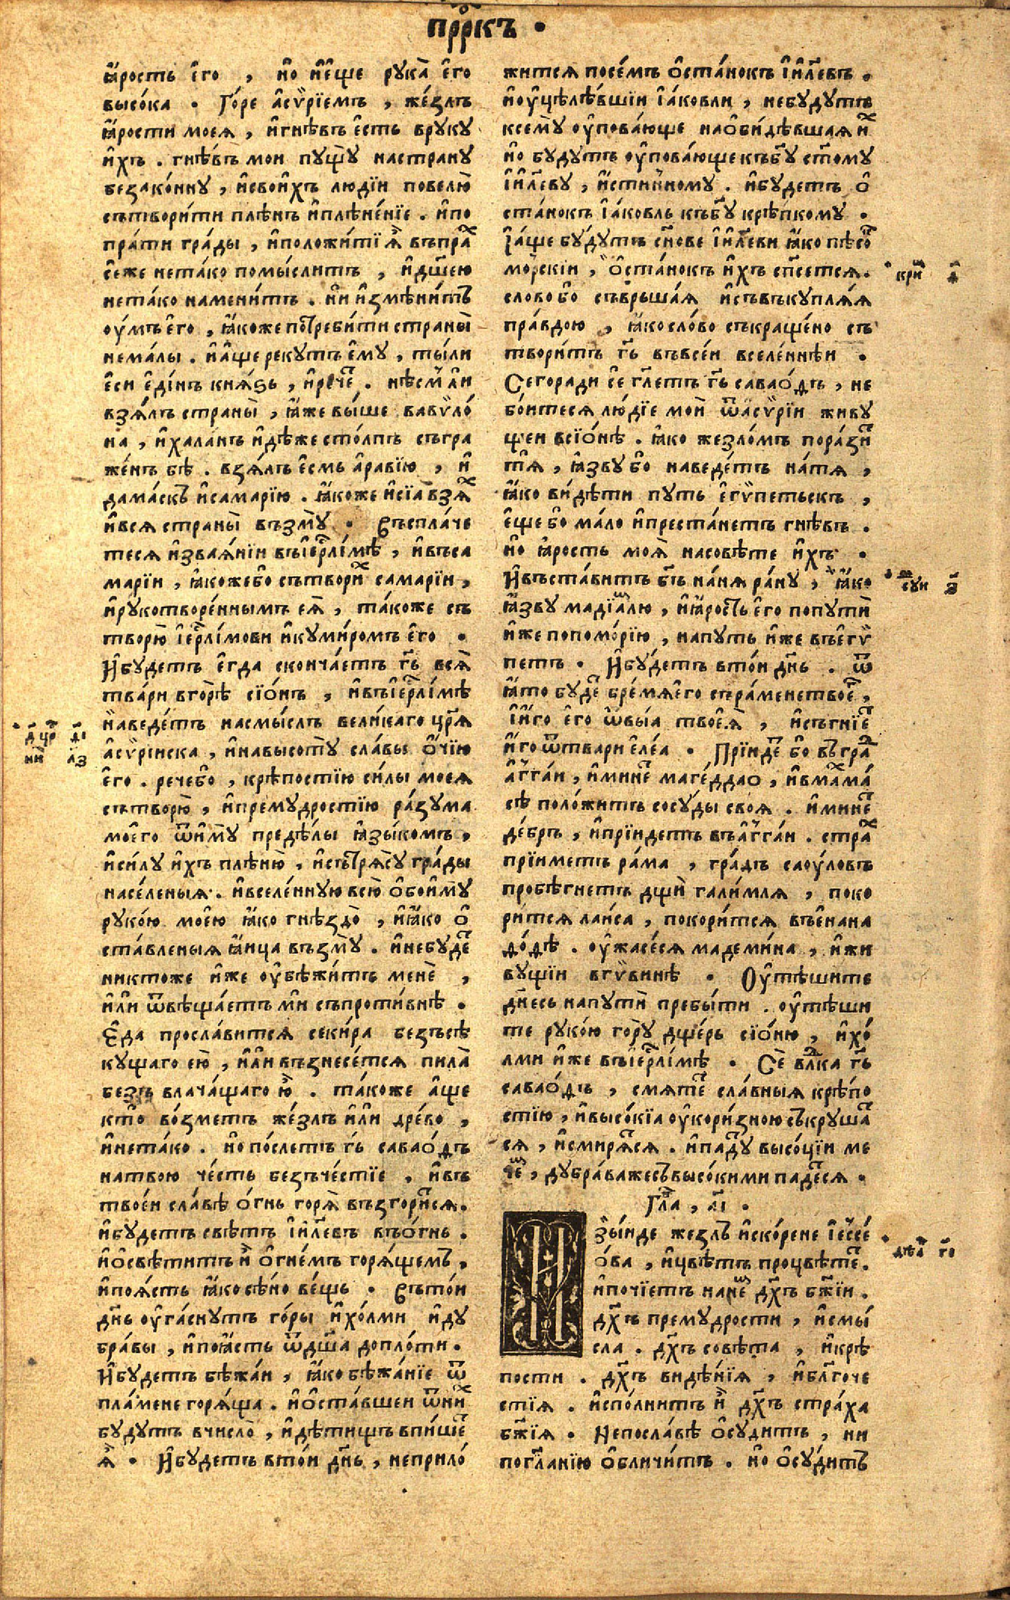 прⷪ҇ркъ •
ꙗ҆рость є҆го̀ , но̀ и҆є҆ще рꙋка̀ є҆го̀
высо́ка . Го́ре а҆сѵ́рїємъ , же́злъ
ꙗ҆́рости моєѧ , и҆гнѣ́въ є҆́сть врꙋкꙋ
и҆́хъ . гнѣ́въ мои пꙋщꙋ̀ настранꙋ
безако́ннꙋ , и҆свои́хъ лю́дїи повелю̀
сътвори́ти плѣ́нъ и҆плѣне́нїе . и҆по
пра́ти гра́ды , и҆положи́тїꙗ҆̀ въпраⷯ
се́же нета́ко помы́слитъ , и҆дш҃ею
нета́ко намени́тъ . нѝ и҆змѣни́тъ
оу҆́мъ є҆го̀ , ꙗ҆́коже потреби́ти страны̀
нема́лы . и҆а҆́ще рекꙋ́тъ є҆мꙋ̀ , ты́ли
є҆сѝ є҆ди́нъ кнѧ́ѕь , и҆рече́ . нѣ́смъ ли
взѧ́лъ страны̀ , ꙗ҆̀же вы́ше вавѷло́
на , и҆хала́нъ и҆дѣ́же сто́лпъ съгра
же́нъ бѣ̀ . взѧ́лъ є҆́смь а҆ра́вїю , и҆
дама́скъ и҆самарі́ю . ꙗ҆́коже и҆сїѧ̀ взѧⷯ
и҆всѧ страны̀ възмꙋ̀ . Въспла́че
тесѧ и҆зваѧ́нїи въїе҆рⷭ҇лі́мѣ , и҆въса
марі́и , ꙗ҆́кожебо сътвориⷯ самарі́и ,
и҆рꙋкотворе́ннымъ єѧ̀ , та́коже съ
творю̀ і҆е҆рⷭ҇лі́мови и҆кꙋми́ромъ є҆го̀ .
И҆бꙋ́детъ є҆гда̀ сконча́етъ гдⷭ҇ь всѧ̀
твари́ вгорѣ̀ сїо́нъ , и҆въїе҆рⷭ҇лі́мѣ
наведе́тъ насмы́слъ вели́каго цр҃ѧ
а҆сѵ́рїиска , и҆навысотꙋ̀ сла́вы о҆́чїю
є҆го̀ . речебо̀ , крѣ́постїю си́лы моеѧ
сътворю̀ , и҆премꙋ́дростїю ра́зꙋма
моего̀ ѿимꙋ̀ предѣ́лы ꙗ҆зы́комъ ,
и҆си́лꙋ и҆́хъ плѣню̀ , и҆сътрѧсꙋ̀ гра́ды
населе́ныѧ . и҆вселе́ннꙋю всю̀ о҆боимꙋ̀
рꙋко́ю моею ꙗ҆́ко гнѣздо̀ , и҆ꙗ҆́ко о҆
ста́вленыѧ ꙗ҆и́ца възмꙋ̀ . и҆небꙋ́деⷮ
никтоже и҆́же оу҆бѣжи́тъ менѐ ,
и҆лѝ ѿвѣща́етъ мѝ съпроти́внѣ .
Є҆да̀ просла́витсѧ секи́ра безъсѣ
кꙋ́щаго ею̀ , и҆лѝ възнесе́тсѧ пила̀
безъ влача́щаго ю҆̀ . та́коже а҆́ще
кто̀ во́зметъ же́злъ и҆лѝ дре́во ,
и҆нета́ко . но̀ по́слетъ гдⷭ҇ь саваѡ́дъ
натвою̀ че́сть безъче́стїе , и҆въ
твое́и сла́вѣ о҆́гнь горѧ̀ възгори́тсѧ .
и҆бꙋ́детъ свѣ́тъ і҆и҃левъ въо҆́гнь .
и҆о҆свѣти́тъ и҆̀ о҆гне́мъ горѧ́щемъ ,
и҆поѧ́сть ꙗ҆́ко сѣ́но ве́щь . Въто́и
дн҃ь оу҆га́снꙋтъ го́ры и҆хо́лми и҆дꙋ
бра́вы , и҆поꙗ҆́сть ѿдш҃а допло́ти .
И҆бꙋ́детъ бѣжа́и , ꙗ҆́ко бѣжа́нїе ѿ
пла́мене горѧ́ща . и҆о҆ста́вшеи ѿниⷯ
бꙋ́дꙋтъ вчисло̀ , и҆дѣ́тищъ впи́шеⷮ
ꙗ҆̀ . И҆бꙋ́детъ вто́и дн҃ь , неприло́
жи́тсѧ посе́мъ о҆ста́нокъ і҆и҃левъ .
и҆оу҆цѣлѣ́вшїи і҆а́ковли , небꙋ́дꙋтъ
ксемꙋ̀ оу҆пова́юще наѡ҆би́дѣвшаѧ иⷯ
но̀ бꙋ́дꙋтъ оу҆пова́юще къбг҃ꙋ ст҃омꙋ
і҆и҃левꙋ , и҆́стинномꙋ . и҆бꙋ́детъ о҆
ста́нокъ і҆а́ковль къбг҃ꙋ крѣ́пкомꙋ .
І҆а҆́ще бꙋ́дꙋтъ сн҃ове і҆и҃леви ꙗ҆́ко пѣсоⷦ
мо́рскїи , о҆ста́нокъ и҆́хъ сп҃сетсѧ .
сло́во бо съврьша́ѧ и҆съвъкꙋплѧ́ѧ
пра́вдою , ꙗ҆́ко сло́во съкраще́но съ
твори́тъ гдⷭ҇ь въвсе́и вселе́ннѣи .
Сегора́ди сѐ гл҃етъ гдⷭ҇ь саваѡ́дъ , не
бо́итесѧ лю́дїе моѝ ѿасѵ́рїи живꙋ
щеи всїо́нѣ . ꙗ҆́ко жезло́мъ порази́
тъѧ , ꙗ҆́звꙋ бо наведе́тъ на́тѧ ,
ꙗ҆́ко ви́дѣти пꙋть є҆гѵ́петьскъ ,
є҆ще бо ма́ло и҆преста́нетъ гнѣ́въ .
но̀ ꙗ҆́рость моѧ̀ насовѣ́те и҆́хъ .
И҆въста́витъ бг҃ъ на́нѧ ра́нꙋ , ꙗ҆́ко
ꙗ҆́звꙋ мадїа́млю , и҆ꙗ҆́рость є҆го попꙋтѝ
и҆́же попомо́рїю , напꙋ́ть и҆́же въегѵ́
петъ . И҆бꙋ́детъ вто́и дн҃ь . ѿ
ꙗ҆́то бꙋ́деⷮ бре́мѧего съра́менетвоеⷢ ,
и҆и҆́го є҆го ѿвы́ѧ твоеѧ̀ , и҆съгнїеⷮ
и҆́го ѿтвари́ єле́а . Прїи́деⷮ бо въграⷣ
а҆гга́и , и҆мине́ⷮ маге́ддаѡ , и҆вма́хма́
сѣ поло́житъ сосꙋ́ды своѧ̀ . и҆мине́ⷮ
де́брь , и҆прїи́детъ въагга́и . страⷯ
прїи́метъ ра́ма , гра́дъ саоу́ловъ
пробѣ́гнетъ дщѝ гали́млѧ , поко
ри́тсѧ лаи́са , покори́тсѧ въенана
ѳоⷣѳѣ . оу҆жасе́сѧ мадеми́на , и҆жи
вꙋ́щїи вгѵ́винѣ . Оу҆тѣ́шите
дн҃есь напꙋтѝ пребы́ти . оу҆тѣ́ши
те рꙋко́ю горꙋ̀ дще́рь сїо́ню , и҆хо́
лми и҆́же въїе҆рⷭ҇лі́мѣ . Сѐ влⷣка гдⷭ҇ь
саваѡ́дъ , смѧте́ⷮ сла́вныѧ крѣ́по
стїю , и҆высо́кїа оу҆кори́зною съкрꙋша́ⷮ
сѧ , и҆смирѧ́тсѧ . и҆падꙋ́ⷮ высо́цїи ме
че́ⷨ , дꙋбра́важесъ высо́кими паде́тсѧ .
Глава̀ , а҃і .
И҆зы́иде же́злъ и҆ско́рене і҆ессе́
о́ва , и҆цвѣ́тъ процвѣте́ⷮ .
и҆почі́етъ нане́ⷨ дх҃ъ бж҃їи .
дх҃ъ премꙋ́дрости , и҆смы́
сла . дх҃ъ совѣ́та , и҆крѣ́
пости . дх҃ъ видѣ́нїѧ , и҆бл҃гоче
стїѧ . и҆спо́лнитъ и҆̀ дх҃ъ стра́ха
бж҃їѧ . Непосла́вѣ о҆сꙋ́дитъ , ни
погл҃анїю о҆бличи́тъ . но̀ о҆сꙋ́дитъ